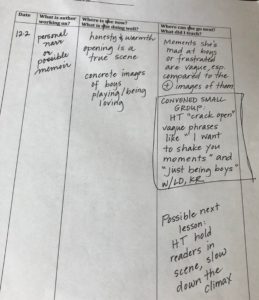 Date
What is author working on?
Where is s/he now?
What is s/he doing well?
Where can s/he go next?
What did I teach?
12.2
personal
narr
or
possible
memoir
honesty & warmth
opening is a
true scene
concrete images
of boys
playing/being
loving
Moments she's
mad at boys
or frustrated
are vague, esp.
compared to the
+ images of them
CONVENED SMALL
GROUP:
HT "crack open"
vague phrases
like "I want
to shake you
moments" and
"just being boys"
w/LD, KR
Possible next
lesson:
HT hold
readers in
scene, slow
down the
climax